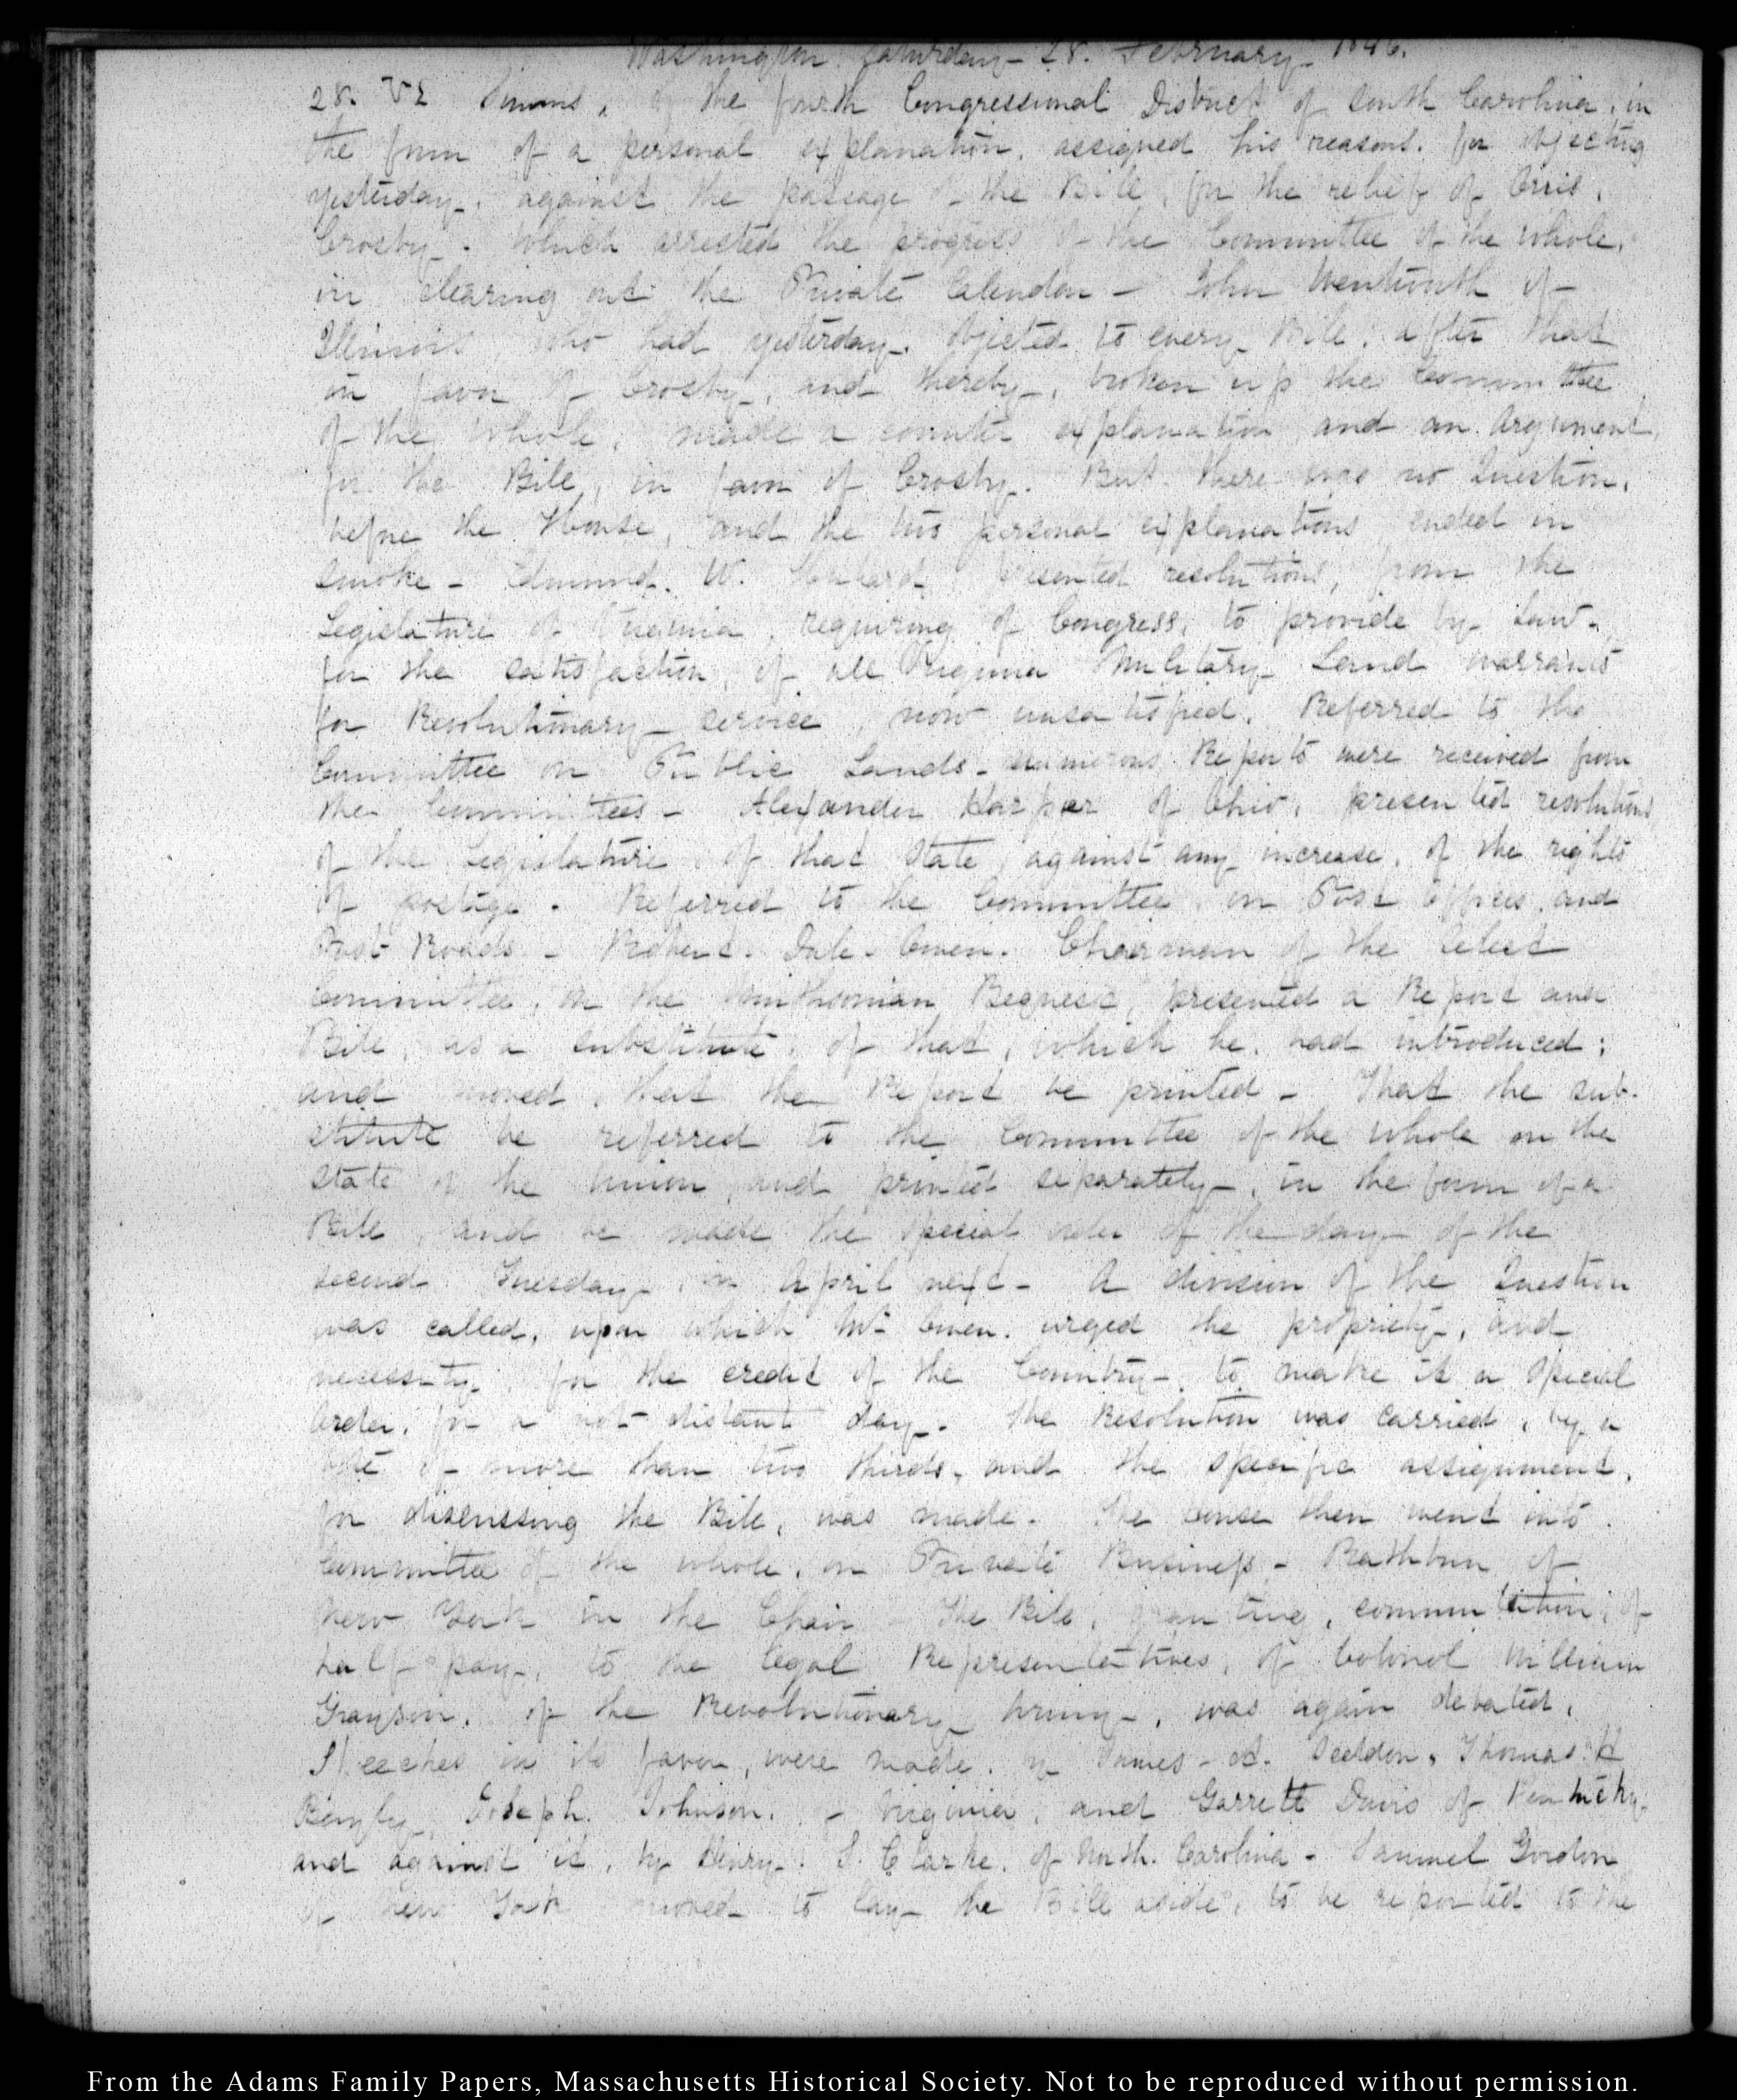 Washington Saturday 28. February 1846.
28. VI. Simms, of the fourth Congressional District of South Carolina, in
the form of a personal explanation, assigned his reasons, for objecting
yesterday, against the passage of the Bill, for the relief of
Crosby. which arrested the progress of the Committee of the whole,
in clearing out the Private Calendar – John Wentworth of
Illinois, who had yesterday, objected to every Bill, after that
in favor of Crosby, and thereby, broken up the Committee
of the whole, made a counter explanation and an Argument,
for the Bill, in favor of Crosby. But there was no Question,
before the House, and the two personal explanations ended in
smoke – Edmund. W. Hubard, presented resolutions, from the
Legislature of Virginia, requiring of Congress, to provide by Law,
for the satisfaction, of all Virginia Military Land warrants
for Revolutionary service, now unsatisfied. Referred to the
Committee on Public Lands – numerous Reports were received from
the Committees – Alexander Harper of Ohio, presented resolutions
of the Legislature, of that State, against any increase, of the rights
of postage. Referred to the Committee, on Post Offices, and
Post Roads – Robert. Dale. Owen. Chairman of the select
Committee, on the Smithsonian Bequest, presented a Report and
Bill, as a substitute, of that, which he, had introduced;
and moved, that the Report be printed – That the sub-
stitute be referred to the Committee of the whole on the
state of the Union, and printed separately, in the form of a
Bill, and be made the special order of the day of the
second Tuesday, in April next – A division of the Question
was called, upon which Mr Owen. urged the propriety, and
necessity, for the credit of the Country, to make it a special
Order, for a not distant day. The Resolution was carried, by a
vote of more than two thirds, and the specific assignment,
for discussing the Bill, was made. The House then went into
Committee of the whole, on Private Business – Rathbun of
New York in the Chair The Bill, granting, commutation, of
half pay, to the legal Representatives, of Colonel William
Grayson, of the Revolutionary Army, was again debated,
Speeches in its favor, were made, by James A. Seddon, Thomas H
Bayly, Joseph. Johnson, of Virginia, and Garrett Davis of Kentucky,
and against it, by Henry. S. Clarke, of North. Carolina – Samuel Gordon
of New York moved to lay the Bill aside, to be reported to the
From the Adams Family Papers, Massachusetts Historical Society. Not to be reproduced without permission.